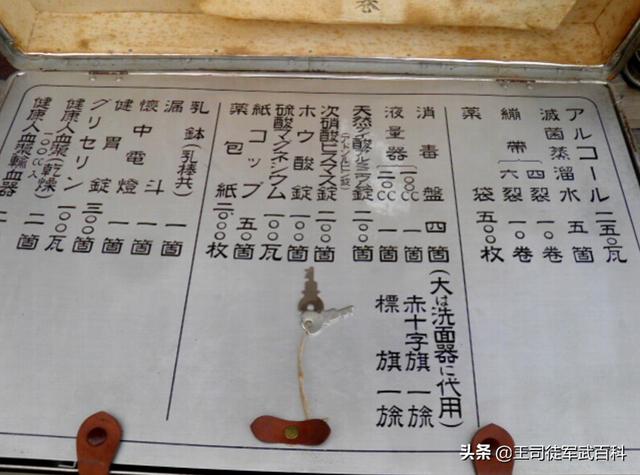 アルコール 二五〇瓦
滅菌蒸溜水 五箇
繃帯 四裂 一〇巻
六裂 一〇巻
薬袋 五〇枚
消毒盤 四箇
(大は洗面器に代用)
液量器 一〇〇cc 一箇
赤十字旗 一旒
二〇cc 一箇
標旗 一旒
二〇〇錠
次硝酸ビスマス錠 二〇〇
ホウ酸錠 一〇〇箇
硫酸マグネシウム 一〇〇瓦
紙コップ 五〇箇
薬包紙 二、〇〇〇枚
乳鉢(乳棒共) 一箇
漏斗 一箇
懐中電燈 一箇
健胃錠 三〇〇
グリセリン 一〇〇瓦
健康人血漿(乾燥) 一〇〇cc入 二箇
健康人血漿輸血器
頭条 @王司徒军武百科